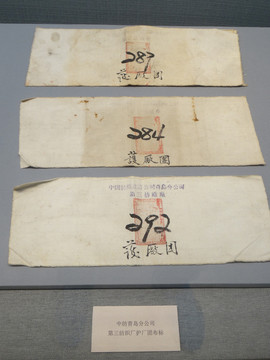 287
護廠團
284
護廠團
292
護廠团
中纺青岛分公司
第三纺织厂护厂团布标